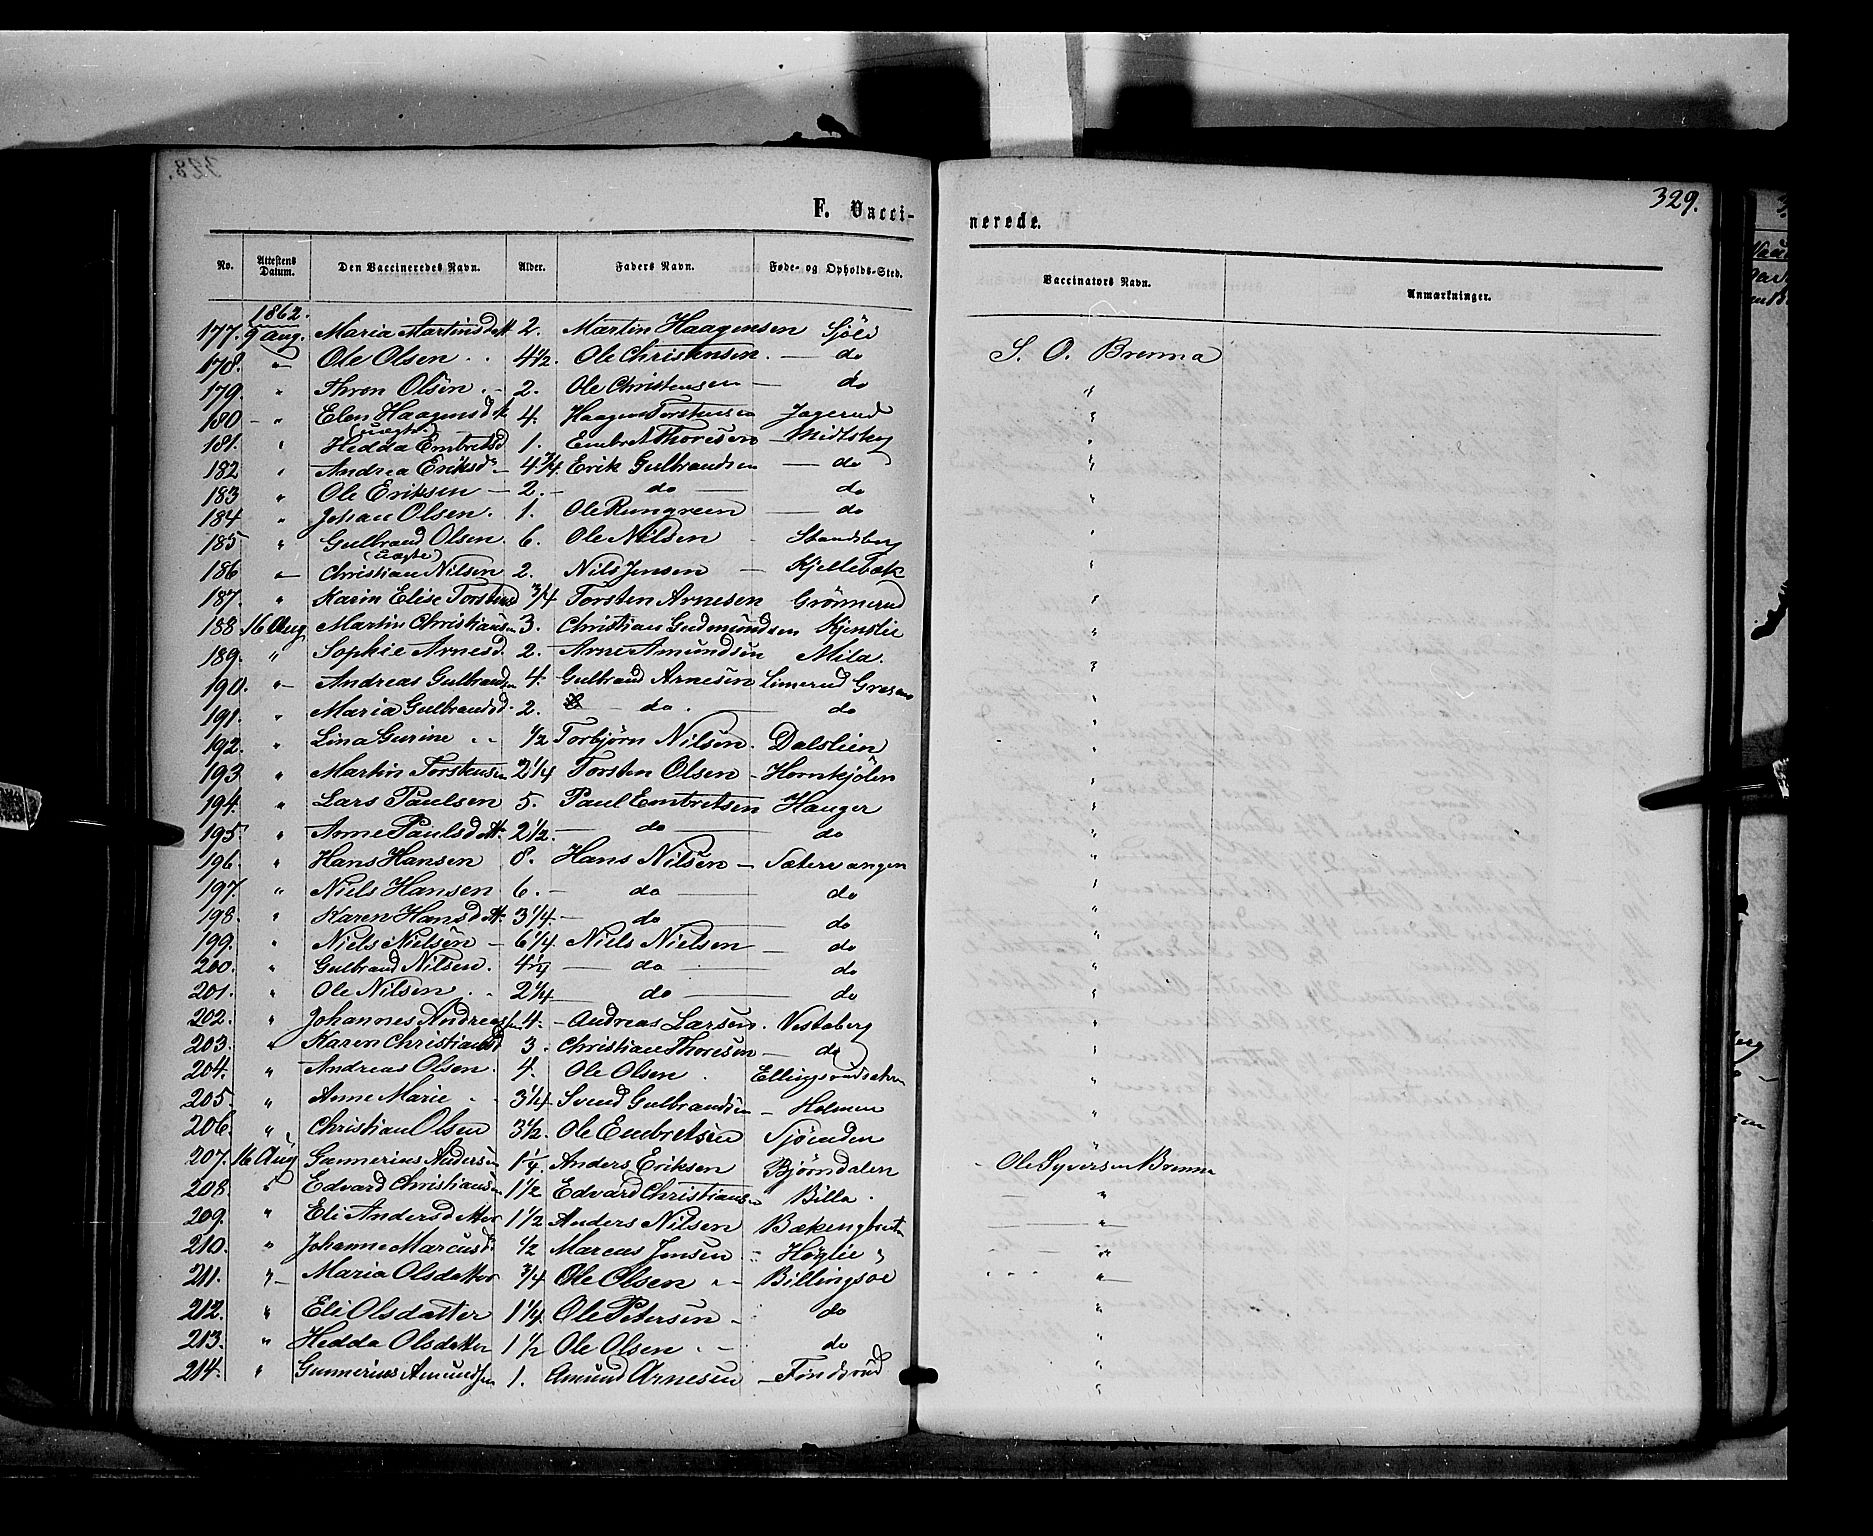 329.
F. Vacci-
nerede.
No. Attestens Datum. Den Vaccineredes Navn. Alder. Faders Navn. Føde- og Opholds-Sted. Vaccinators Navn. Anmærkninger.
1862.
177. 9 Aug. Maria Martinsdatt. 2. Martin Haagensen
178. " Ole Olsen 4 1/2. Ole Christensen. — do S. O. Brenna
179. " Thron Olsen 2. Ole Christensen — do "
180 " Elen Haagensd. 4. Haagen Torstensen Jagerud "
(uægte)
181. " Hedda Embretsd 1. Embret Thoresen — Midtskog "
182 " Andrea Eriksd. 4 3/4. Erik Gulbrandsen — do "
183 " Ole Eriksen — 2. — do — do
184 " Johan Olsen. 1. Ole Rungreen — do "
185 " Gulbrand Olsen. 6. Ole Nilsen - "
(uægte)
186 " Christian Nilsen 2. Nils Jensen — Kjellebæk "
187. " Karin Elise Torstensd 3/4 Torsten Arnesen Grønnerud "
188 16 Aug Martin Christiansen 3. Christian Gudmundsen Kjenslie "
189. " Sophie Arnesd. 2. Arne Amundsen Mila. "
190. " Andreas Gulbrandsen 4. Gulbrand Arnesen Limerud "
191. " Maria Gulbrandsd. 2. do. — do "
192. " Lina Gurine 1/2 Torbjørn Nilsen. Dalslien "
193 " Martin Torstensen 2 1/4 Torsten Olsen — Hornkjølen "
194. " Lars Paulsen 5. Paul Embretsen Hauger "
195. " Anne Paulsdatt. 2 1/2. — do — do "
196. " Hans Hansen 8. Hans Nilsen — Sætervangen "
197. " Niels Hansen 6. — do — do "
198. " Karen Hansdatt. 3 1/4. — do — do "
199. " Niels Nielsen — 6 1/4. Niels Nielsen — do "
200. " Gulbrand Nilsen. 4 1/4 — do — do "
201. " Ole Nilsen 2 1/4 — do — do "
202. " Johannes Andreassen 4. — Andreas Larsen. Vesteberg "
203. " Karen Christiansd 3. Christian Thoresen — do "
204. " Andreas Olsen. 4. Ole Olsen. Ellingsrudsetern "
205. " Anne Marie 3 1/4 Svend Gulbrandsen — Holmen "
206. " Christian Olsen 3 1/2. Ole Embretsen Sjøenden "
207. 16 Aug Gunnerius Andersen 1 1/4. Anders Eriksen Bjørndalen Ole Syversen Brenna
208. " Edvard Christiansen 1 1/2 Edvard Christiansen Billa. "
209. " Eli Andersdatter 1 1/2 Anders Nilsen "
210. " Johanne Marcusd 1/2 Marcus Jensen Høglie "
211. " Maria Olsdatter 3/4 Ole Olsen Billingsøe "
212. " Eli Olsdatter 1 1/4 Ole Petersen — do "
213. " Hedda Olsdatter 1 1/2 Ole Olsen do "
214. " Gunnerius Amundsen 1. Amund Arnesen — Findsrud "